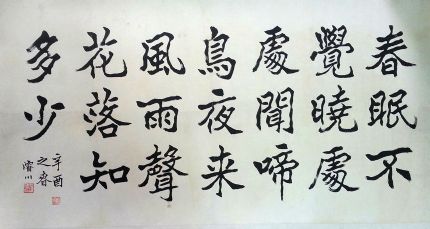 春眠不
覺曉處
處聞啼
鳥夜来
風雨聲
花落知
多少
辛酉
之春
川